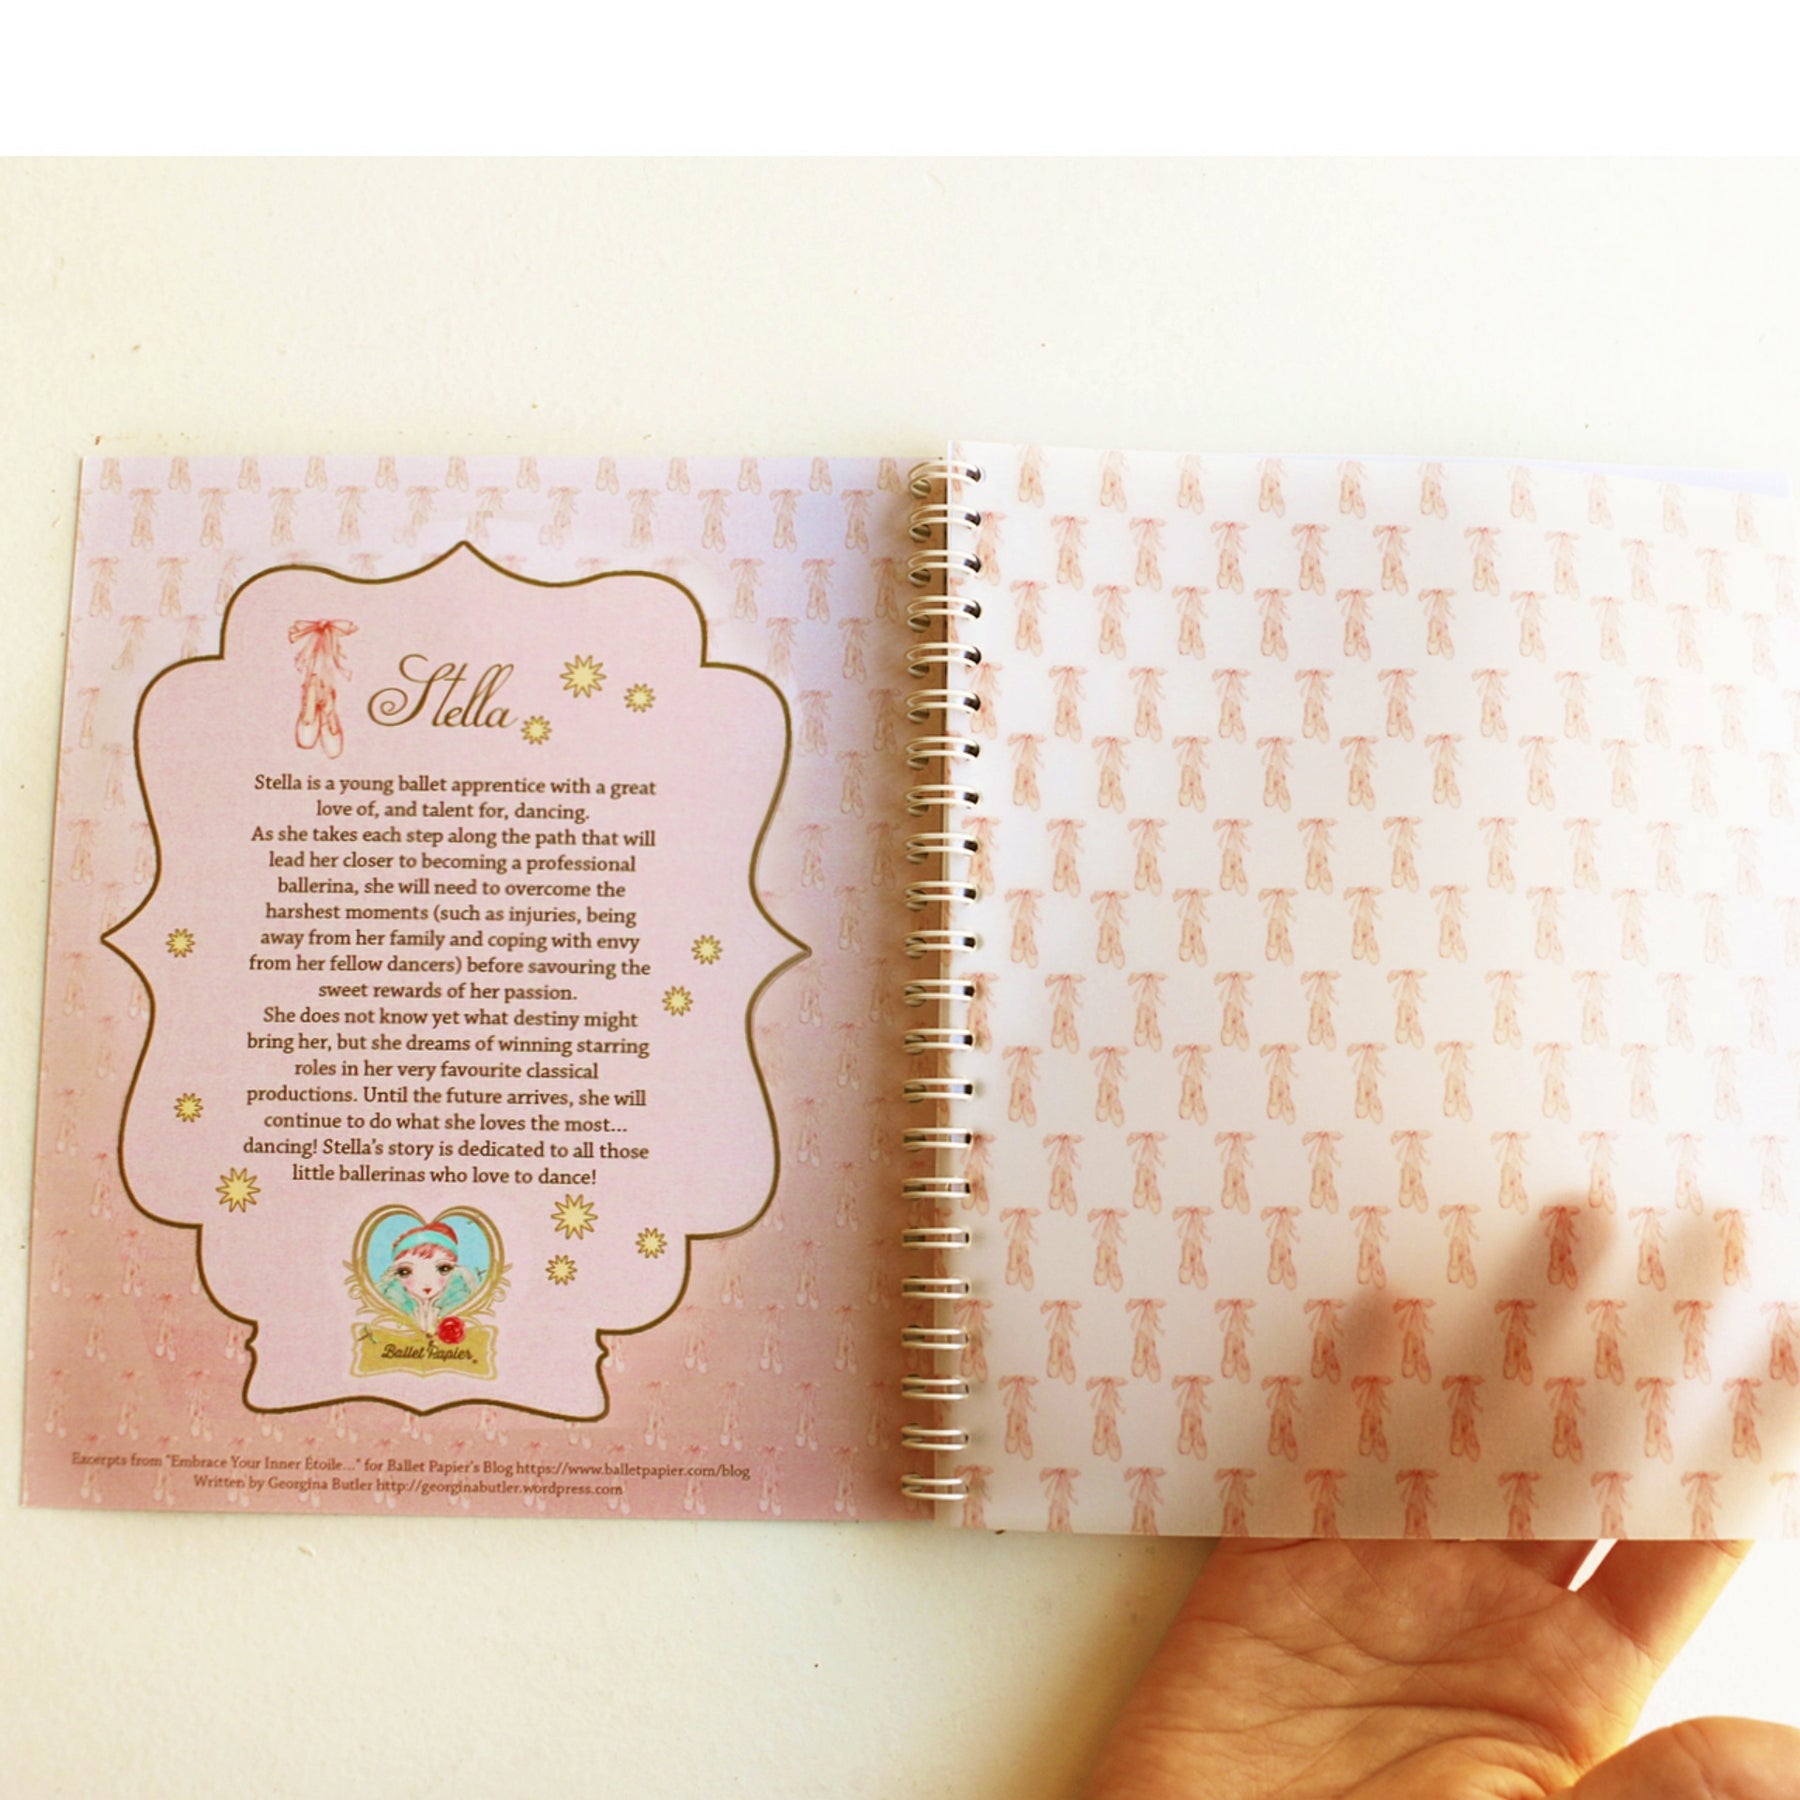 Stella
Stella is a young ballet apprentice with a great
love of, and talent for, dancing.
As she takes each step along the path that will
lead her closer to becoming a professional
ballerina, she will need to overcome the
harshest moments (such as injuries, being
away from her family and coping with envy
from her fellow dancers) before savouring the
sweet rewards of her passion.
She does not know yet what destiny might
bring her, but she dreams of winning starring
roles in her very favourite classical
productions. Until the future arrives, she will
continue to do what she loves the most...
dancing! Stella's story is dedicated to all those
little ballerinas who love to dance!
Ballet Papier
Excerpts from "Embrace Your Inner Étoile..." for Ballet Papier's Blog https://www.balletpapier.com/blog
Written by Georgina Butler http://georginabutler.wordpress.com